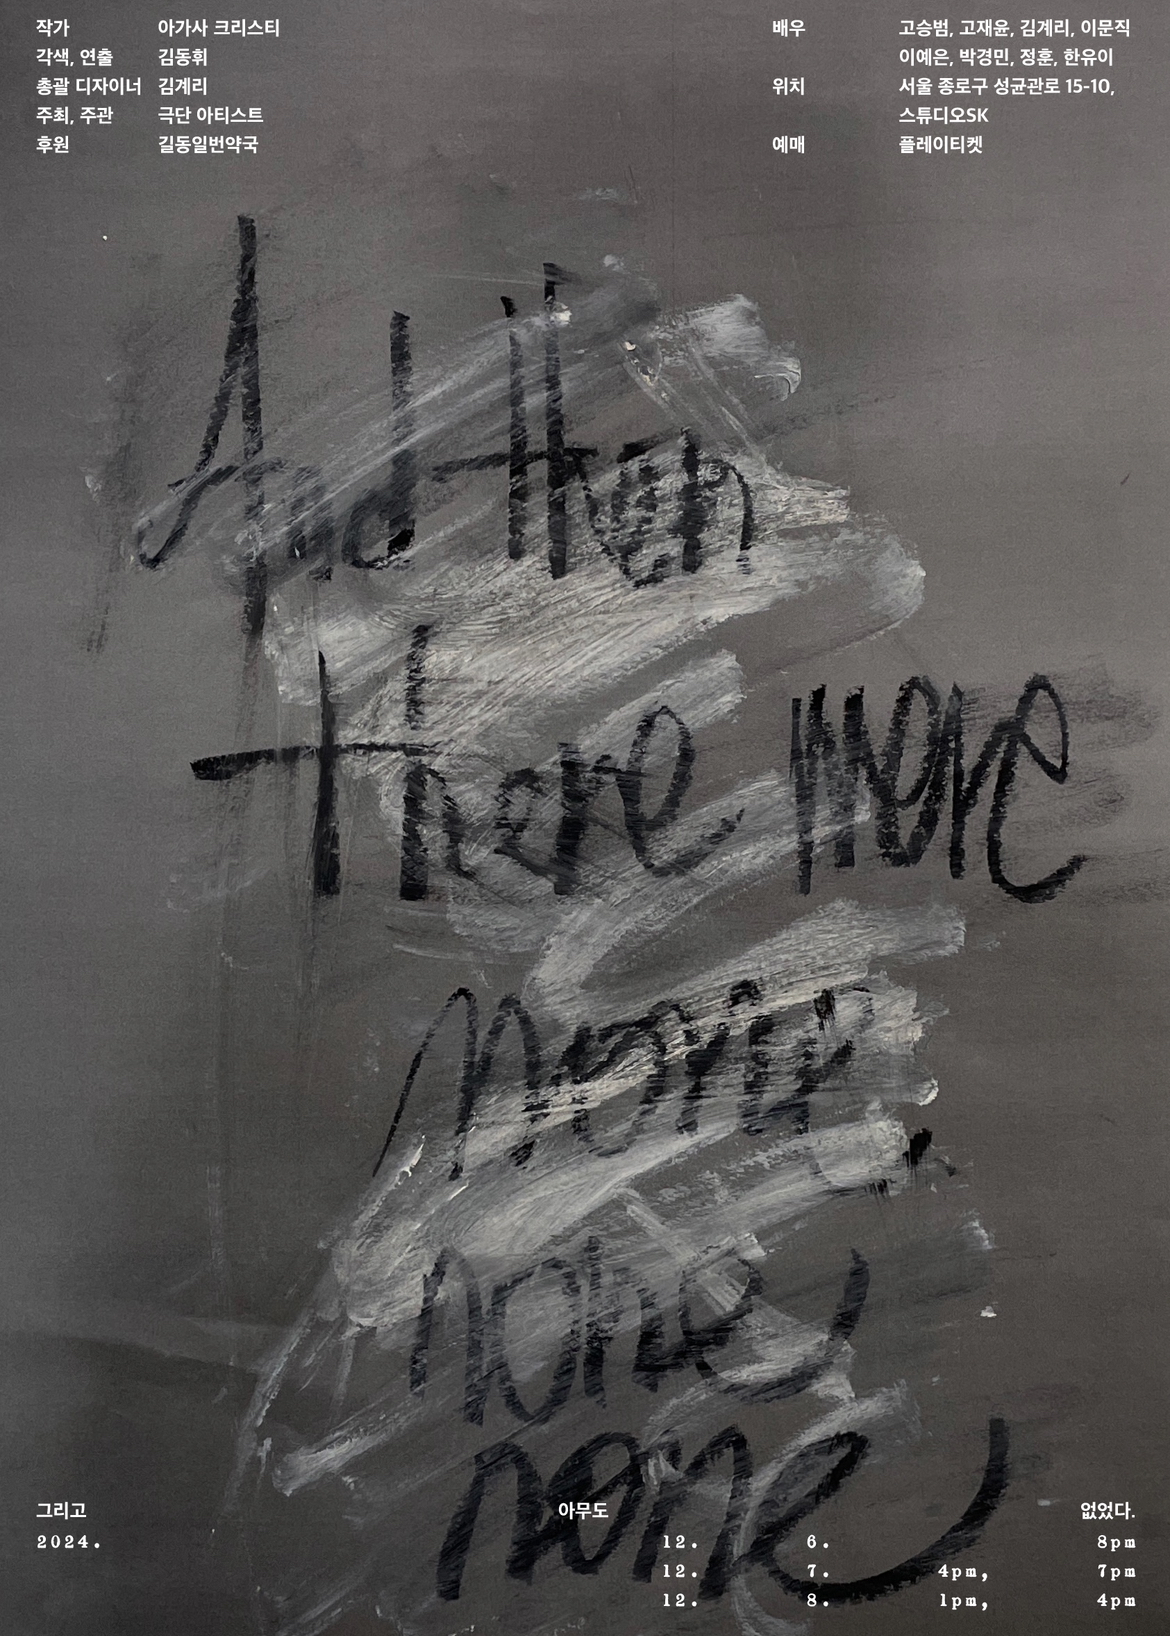 작가 아가사 크리스티
각색, 연출 김동휘
총괄 디자이너 김계리
주최, 주관 극단 아티스트
후원 길동일번약국
배우 고승범, 고재윤, 김계리, 이문직
이예은, 박경민, 정훈, 한유이
위치 서울 종로구 성균관로 15-10,
스튜디오SK
예매 플레이티켓
And then
there were
none
none
none
그리고 아무도 없었다.
2024. 12. 6. 8pm
12. 7. 4pm, 7pm
12. 8. 1pm, 4pm